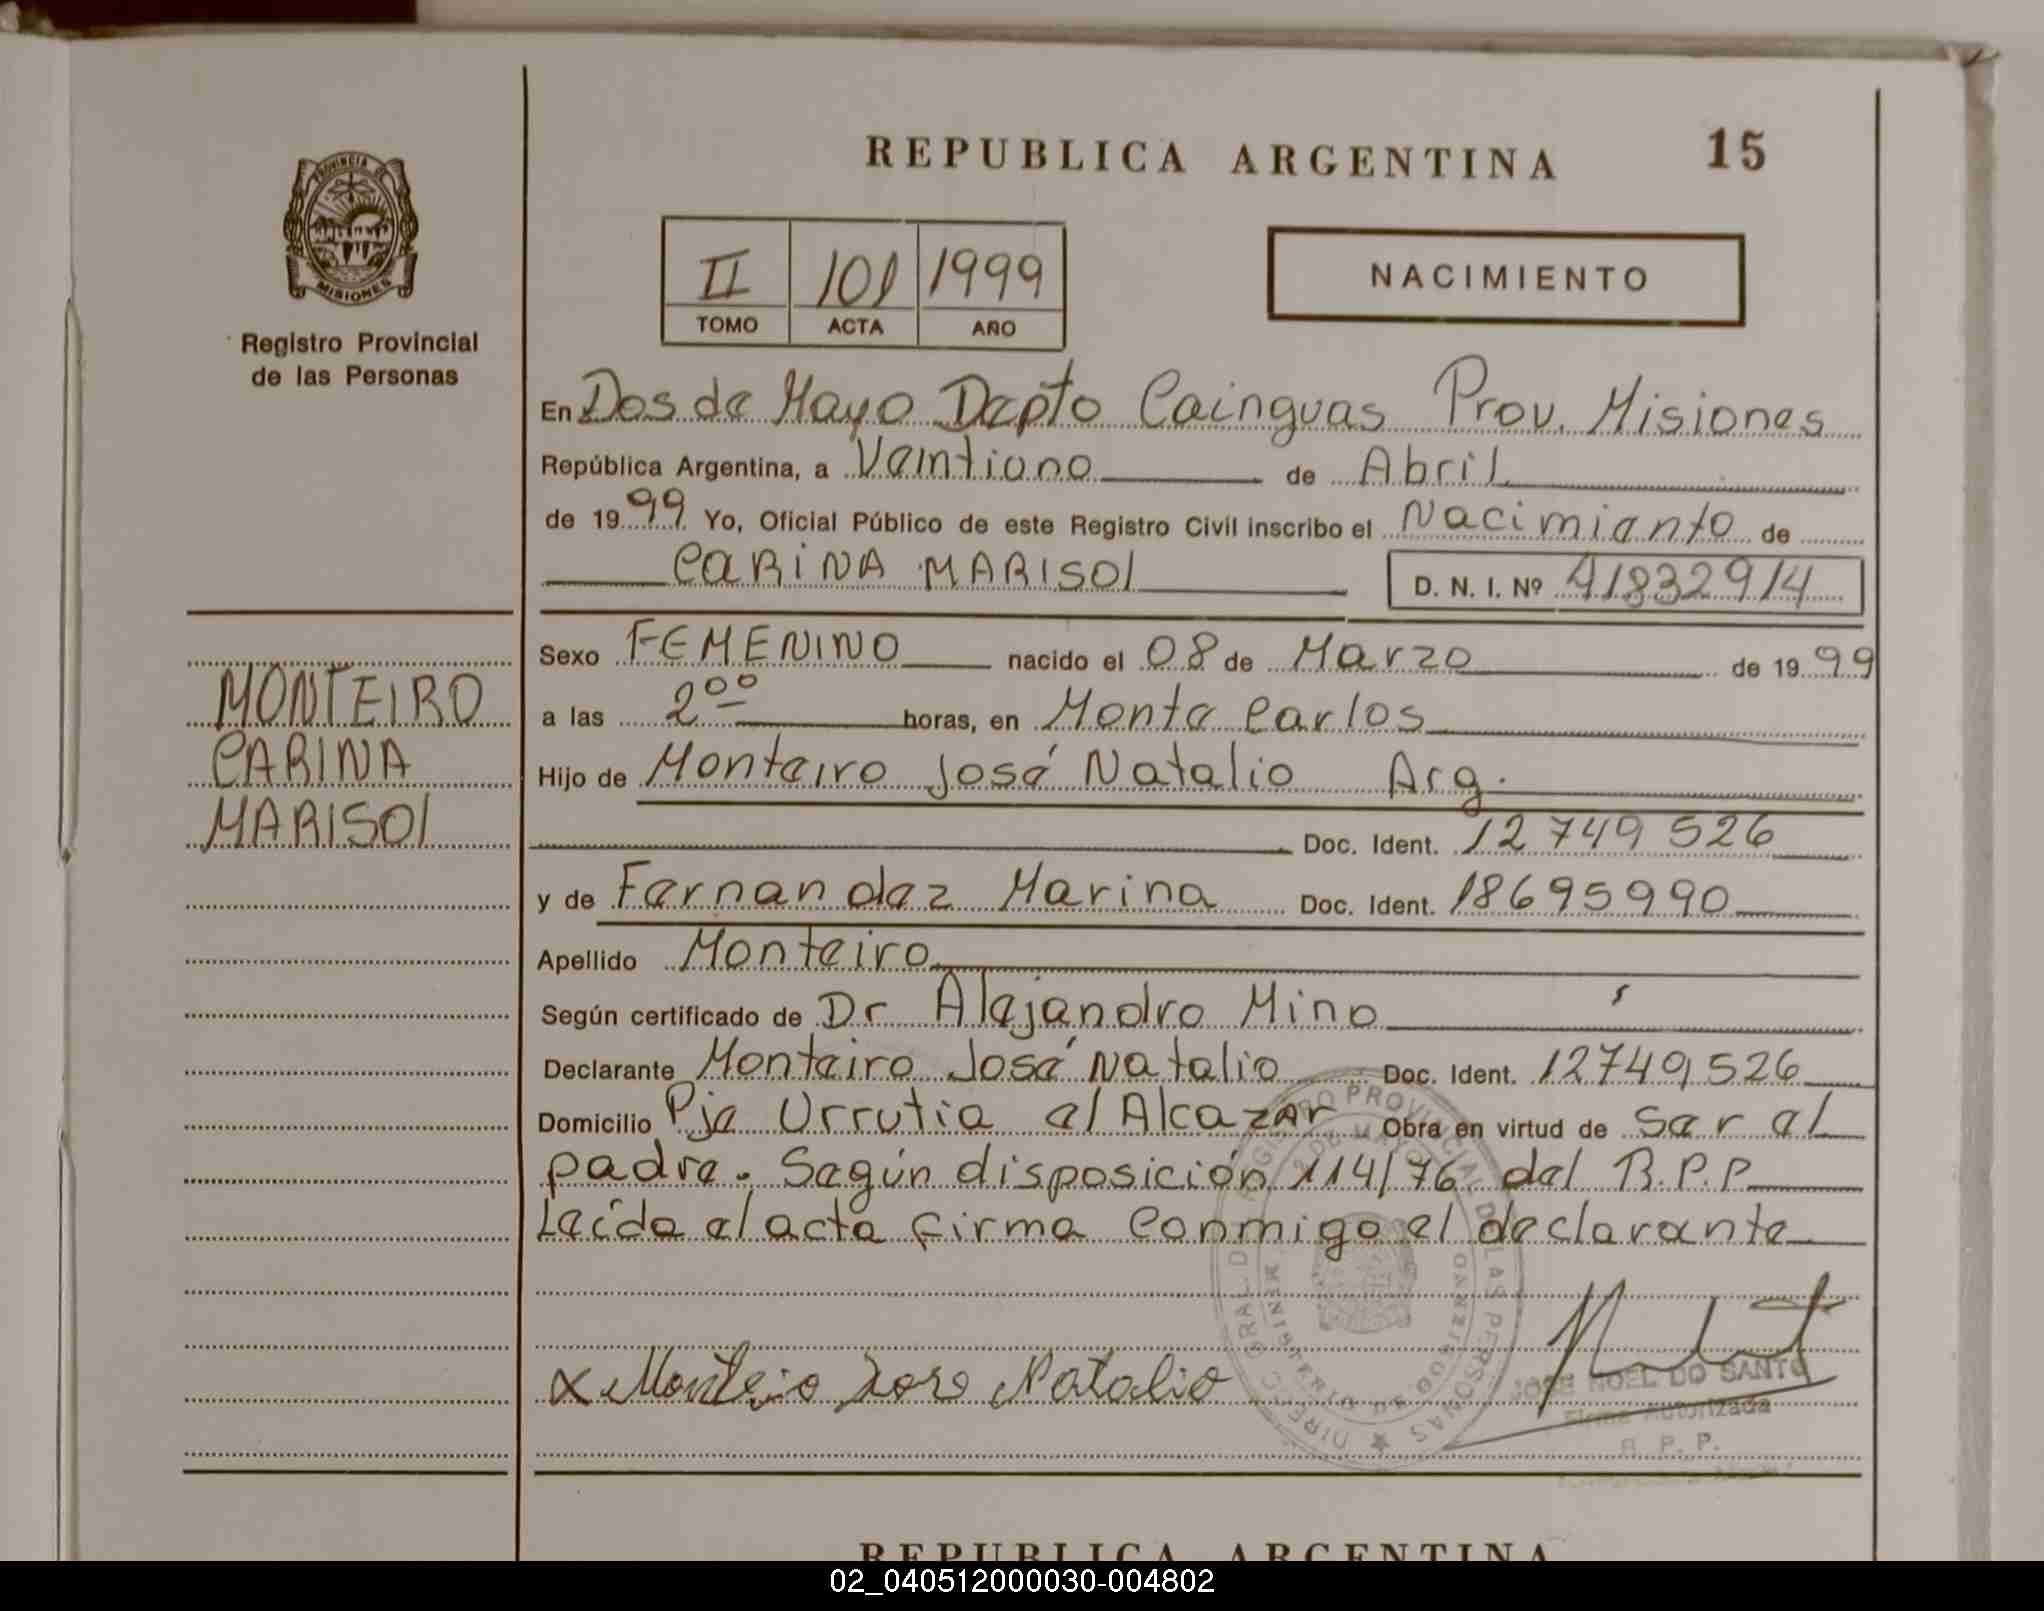 REPUBLICA ARGENTINA 15
PROVINCIA DE
MISIONES
Registro Provincial
de las Personas
II 101 1999
TOMO ACTA AÑO
NACIMIENTO
En Dos de Mayo Depto Cainguas Prov. Misiones
República Argentina, a Veintiuno de Abril
de 1999 Yo, Oficial Público de este Registro Civil inscribo el Nacimiento de
CARINA MARISOl D. N. I. Nº 41832914
MONTEIRO
CARINA
MARISOl
Sexo FEMENINO nacido el 08 de Marzo de 1999
a las 2⁰⁰ horas, en Monte Carlos
Hijo de Monteiro José Natalio Arg.
Doc. Ident. 12749526
y de Fernandez Marina Doc. Ident. 18695990
Apellido Monteiro
Según certificado de Dr Alejandro Mino
Declarante Monteiro José Natalio Doc. Ident. 12749526
Domicilio Pje Urrutia el Alcazar Obra en virtud de ser el
padre. Según disposición 114/76 del R.P.P
Leída el acta firma conmigo el declarante
x Monteiro Jose Natalio
JOSE NOEL DO SANTO
Firma Autorizada
R. P. P.
REPUBLICA ARGENTINA
02_040512000030-004802